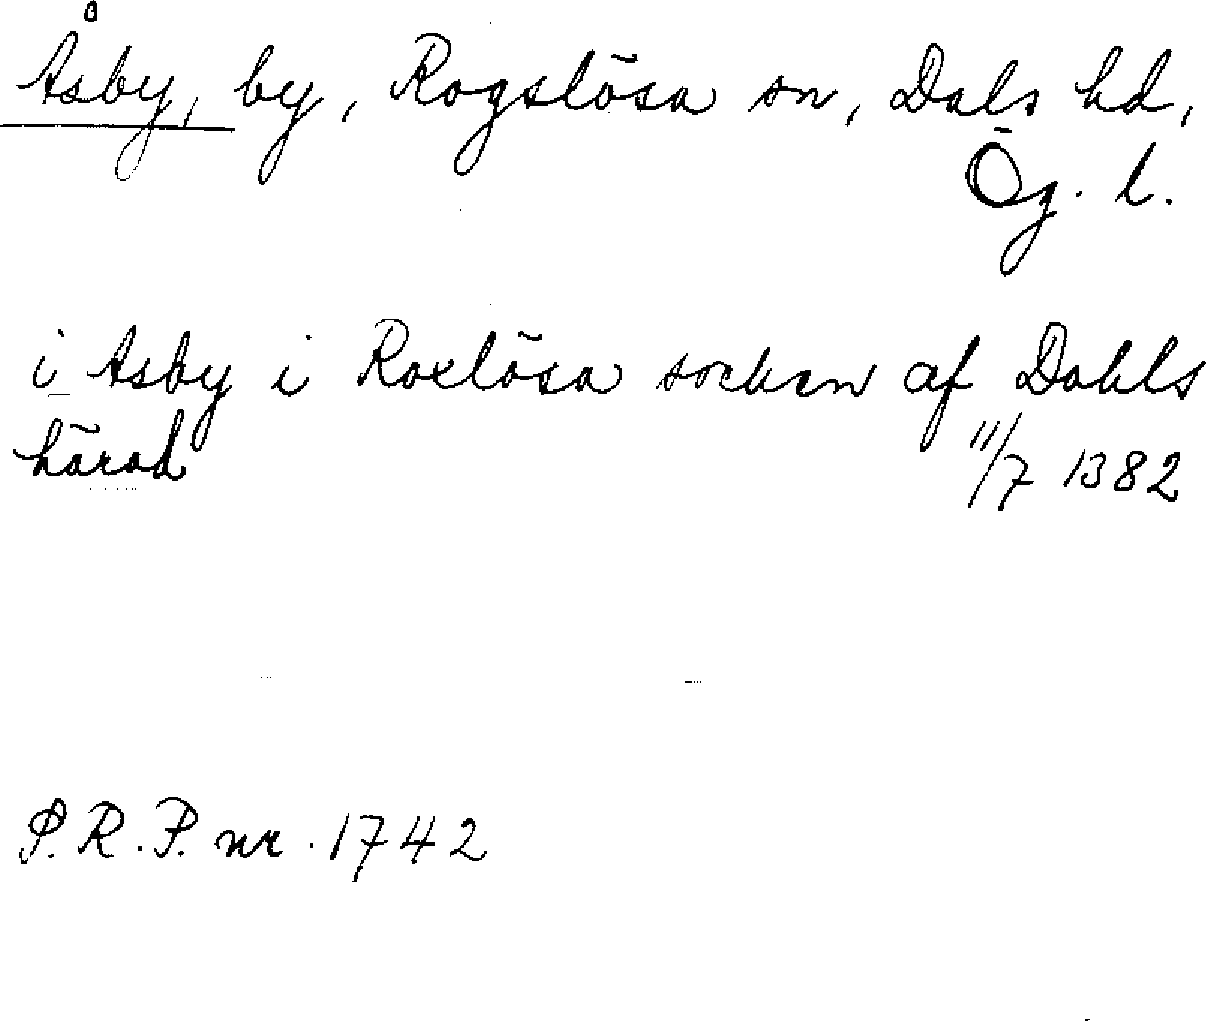 Åsby, by, Rogslösa sn, Dals hd,
Ög. l.
i Asby i Roxlösa socken af Dahls
härad 11/7 1382
P. R. P. nr. 1742